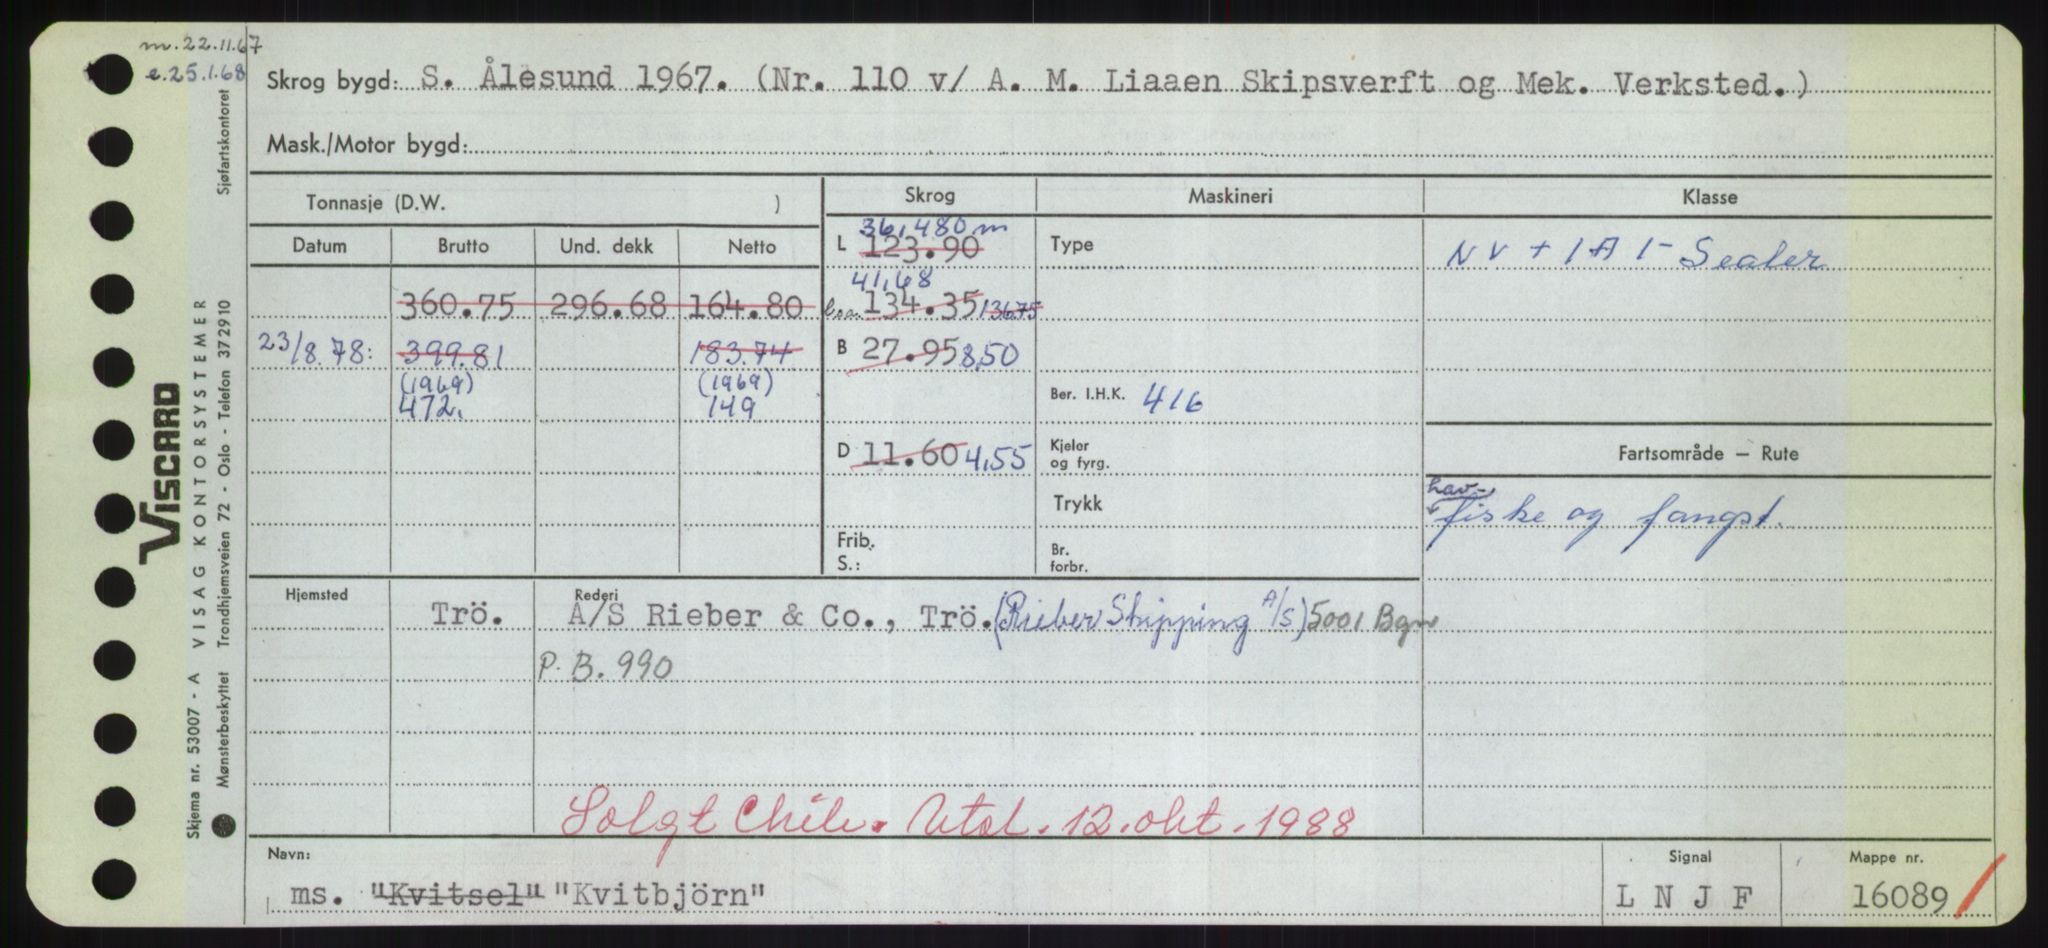 m. 22.11.67
e. 25.1.68
Skrog bygd: S. Ålesund 1967. (Nr. 110 v/ A. M. Liaaen Skipsverft og Mek. Verksted.)
Mask./Motor bygd:
Tonnasje (D.W. )
Skrog
Maskineri
Klasse
Datum Brutto Und. dekk Netto
L 36,480 m
123.90
Type
NV + 1A1 - Sealer
41,68
360.75 296.68 164.80
l.o.a. 134.35 136.75
23/8.78: 399.81 183.74
B 27.95 8,50
(1969) (1969)
472. 149
Ber. I.H.K. 416
D 11.60 4,55
Kjeler
og fyrg.
Fartsområde — Rute
Trykk
hav-
fiske og fangst.
Frib.
S.:
Br.
forbr.
Hjemsted
Rederi
Trö. A/S Rieber & Co., Trö. (Rieber Shipping A/S) 5001 Bgn
P.B. 990
Solgt Chile. Utsl. 12. okt. 1988
Navn:
Signal
Mappe nr.
ms. "Kvitsel" "Kvitbjörn"
L N J F
16089
VISCARD
Skjema nr. 53007 - A VISAG KONTORSYSTEMER
Mønsterbeskyttet Trondhjemsveien 72 - Oslo - Telefon 372910 Sjøfartskontoret